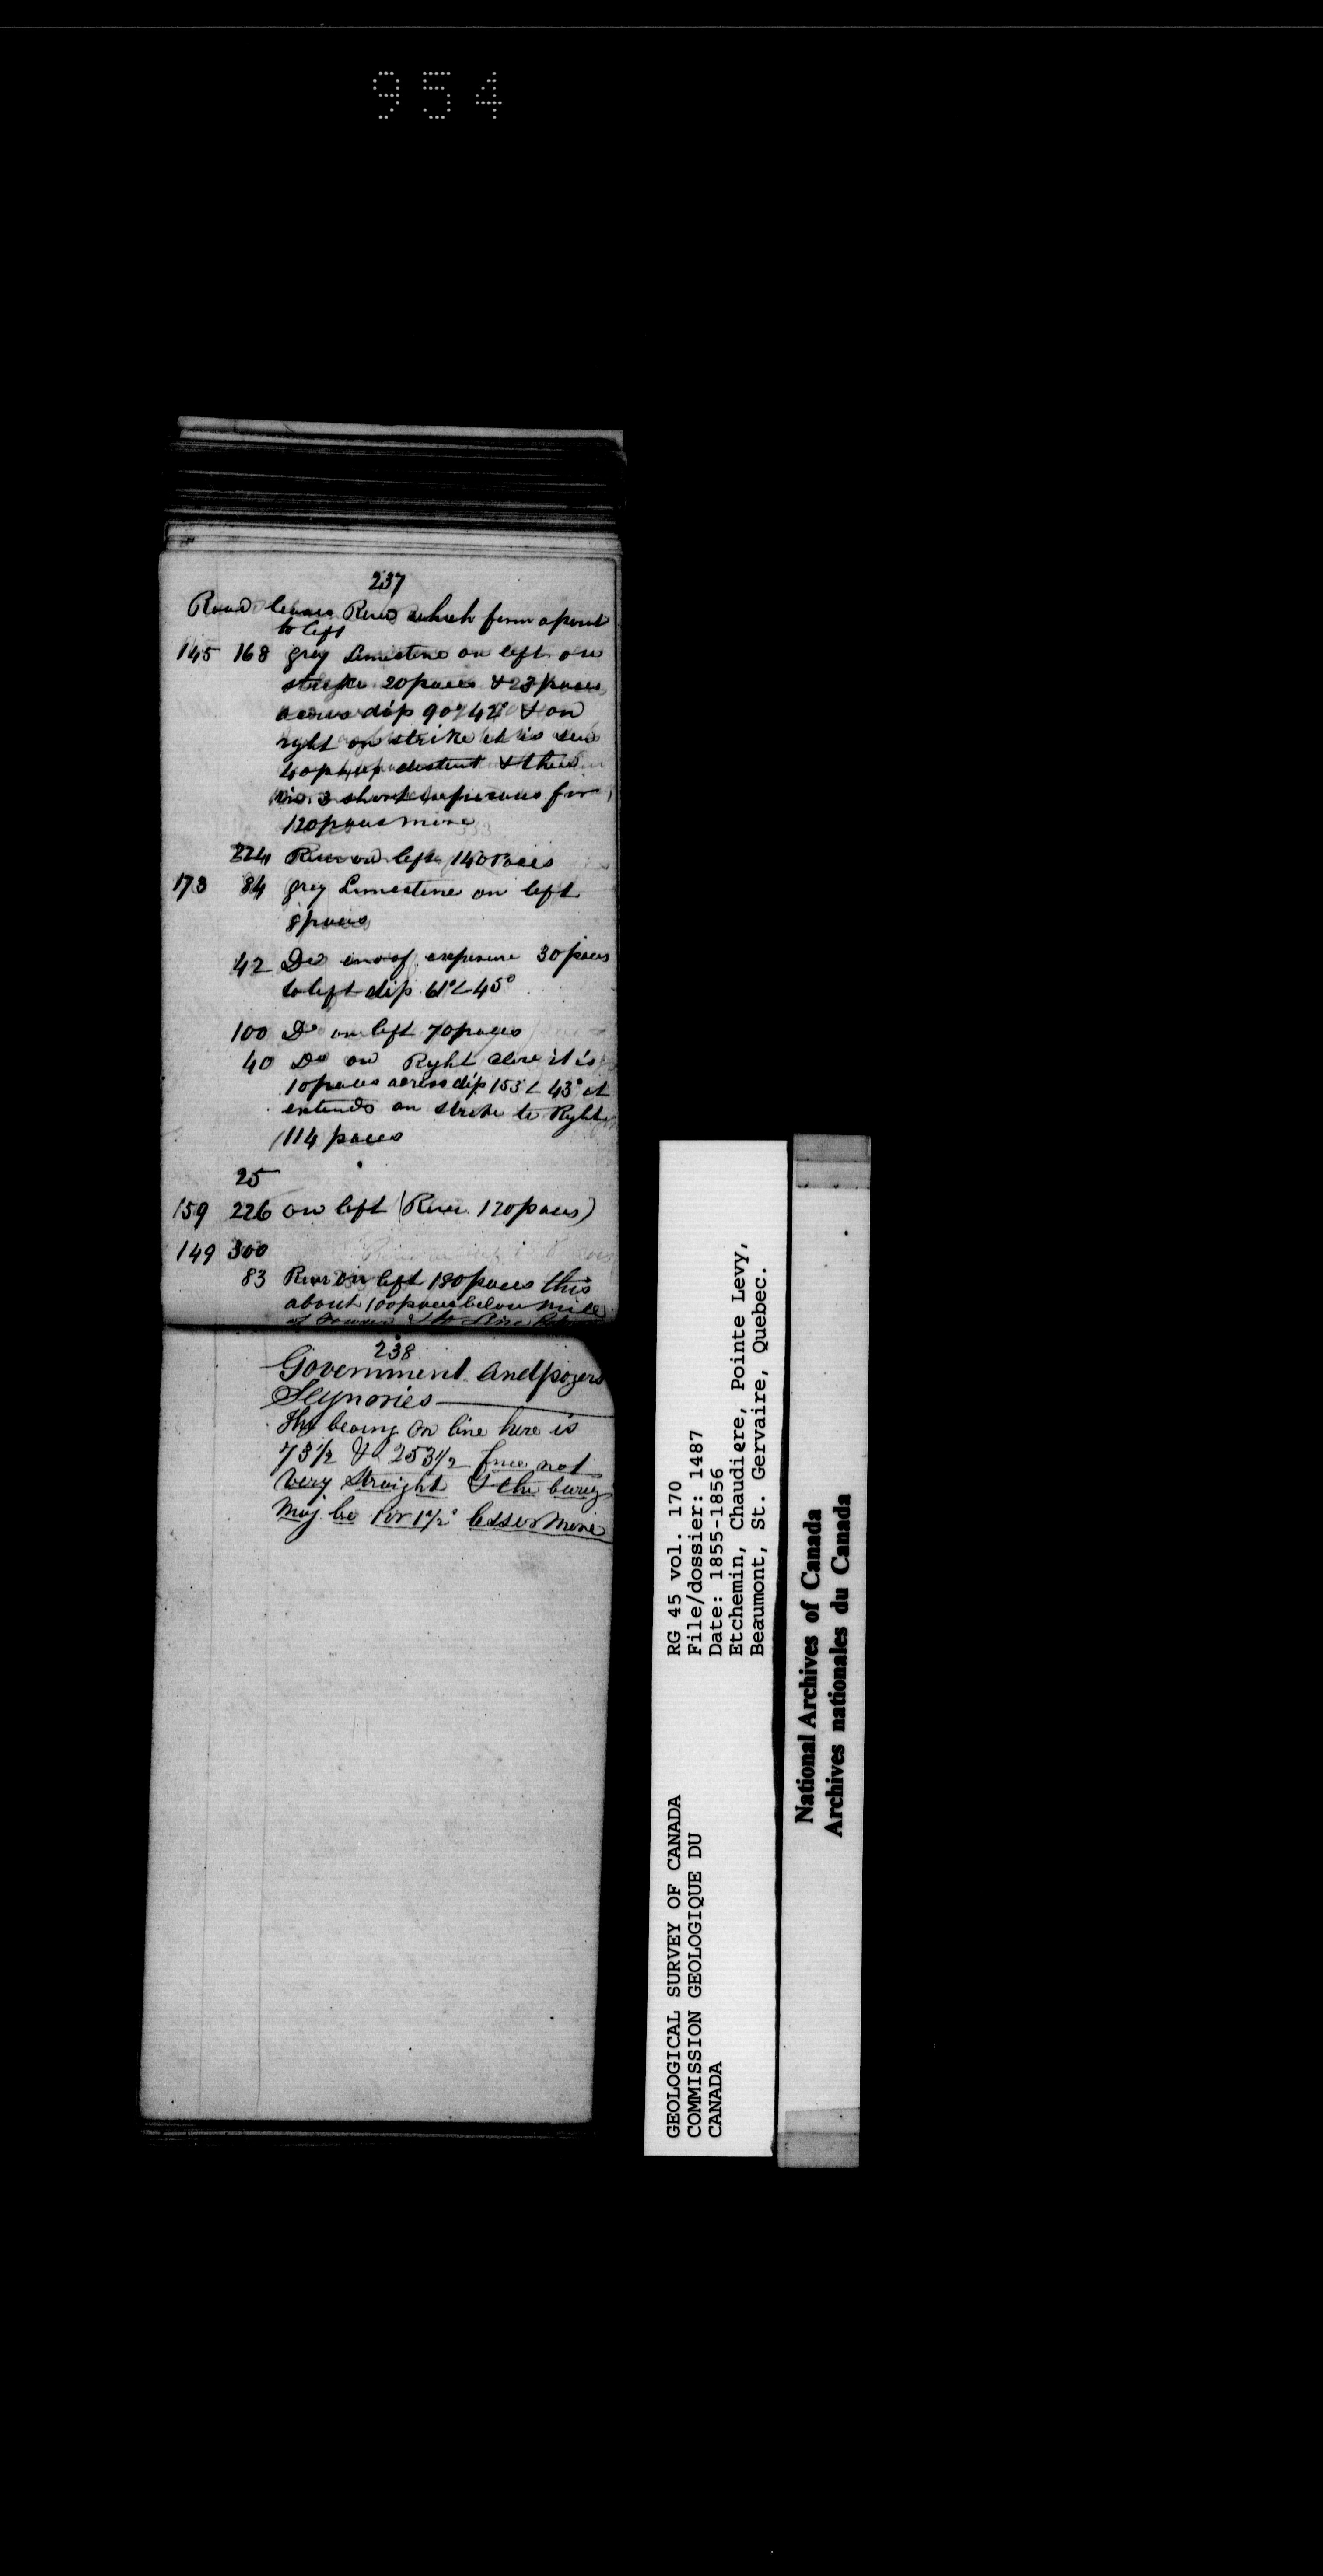 954
237
Road leaves River which form a point
to left
145 168 grey Limestone on left on
strike 20 paces & 23 paces
across dip 90°<42° & on
right on strike it is seen
distant &
3 short exposures for
120 paces more
224 River on left 140 Paces
173 84 grey Limestone on left
8 paces
42 Do end of exposure 30 paces
to left dip 61°<45°
100 Do on left 70 paces
40 Do on Right above it is
10 paces across dip 153<43° it
extends on strike to Right
114 paces
25
159 226 on left (River 120 paces)
149 300
83 River on left 180 paces this
about 100 paces below mill
238
Government and
Seynories
The bearing on line here is
73 1/2 & 253 1/2 fence not
very straight & the bearing
may be 1 or 1 1/2° less or more
RG 45 vol. 170
File/dossier: 1487
Date: 1855-1856
Etchemin, Chaudiere, Pointe Levy,
Beaumont, St. Gervaire, Quebec.
GEOLOGICAL SURVEY OF CANADA
COMMISSION GEOLOGIQUE DU
CANADA
National Archives of Canada
Archives nationales du Canada